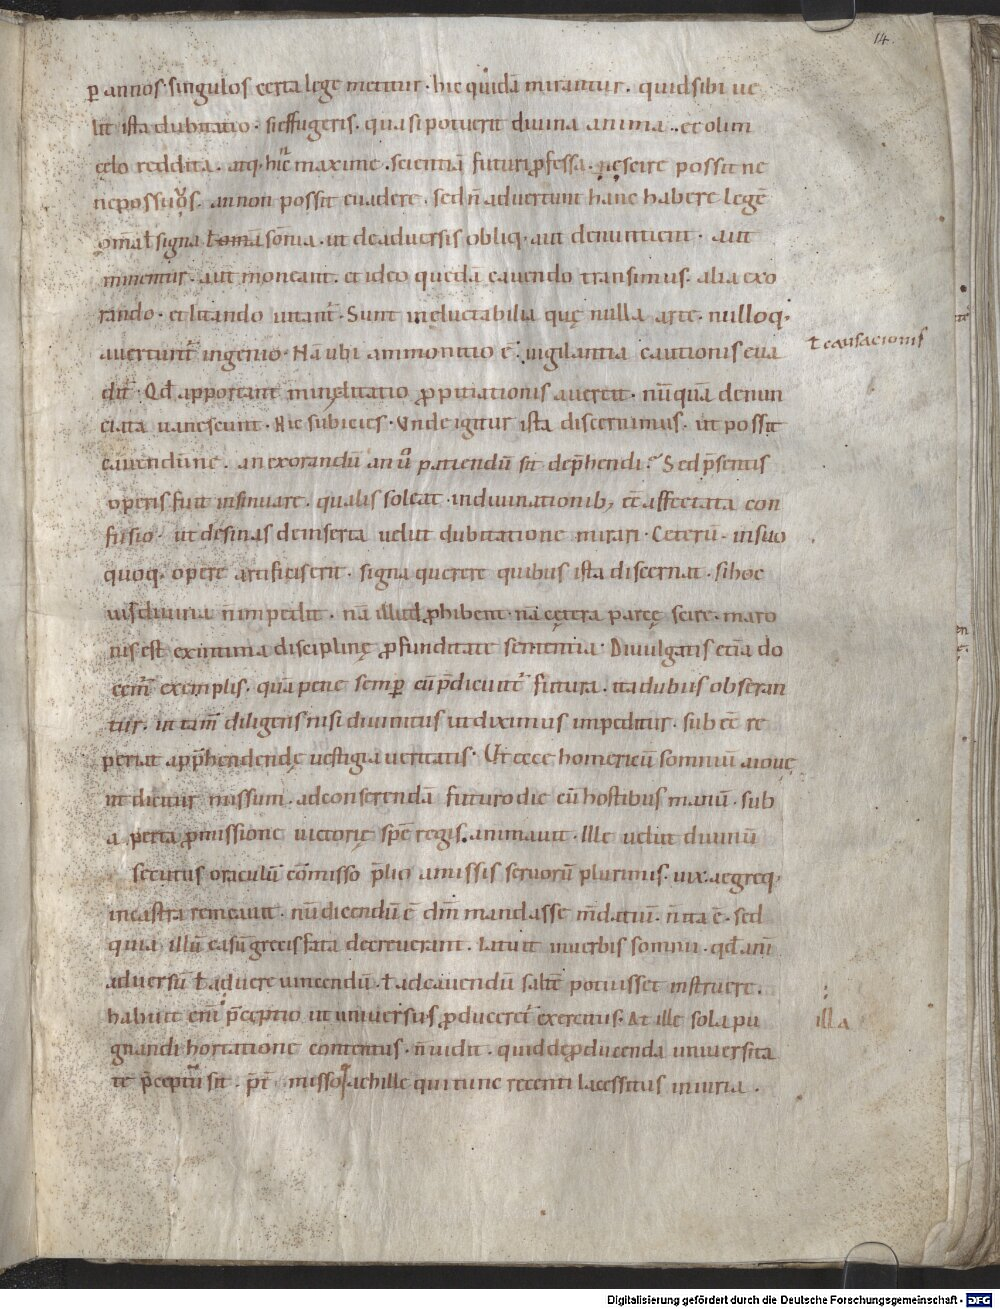 14.
ꝑ annos singulos certa lege metitur · hic quidā mirantur · quid sibi ue
lit ista dubitatio · si effugeris · quasi potuerit diuina anima · et olim
cęlo reddita · atq; hic maxime · scientiā futuri ꝓfessa · nescire possit ne
nepos suus · an non possit euadere · sed n̄ aduertunt hanc habere legē
om̄a ł signa ł om̄a somnia · ut de aduersis obliq; aut denuntient · aut
minentur · aut moneant · et ideo quedā cauendo transimus · alia exo
rando · et litando uitant᷑ · Sunt ineluctabilia quę nulla arte · nulloq;
auertunt᷑ ingenio · Nā ubi ammonitio ē · uigilantia cautionis eua
dit᷑ · Qd̄ apportant minę litatio ꝓpitiationis auertit · nūquā denun
ł causacionis
ciata uanescunt · Hic subicies · Vnde igitur ista discernimus · ut possit
cauendūne · an exorandū an ū patiendū sit dep̄hendi? Sed p̄sentis
operis fuit insinuare · qualis soleat · in diuinationib; eē affectata con
fusio · ut desinas de inserta uelut dubitatione mirari · Ceterū · in suo
quoq; opere artificis erit · signa querere quibus ista discernat · si hoc
uis diuina n̄ impedit · nā illud ꝓhibent · nā cętera parcę scire · maro
nis est ex intima disciplinę ꝓfunditate sententia · Diuulgatis etiā do
cem᷑ exemplis · quā pene semꝑ cū p̄dicunt᷑ futura · ita dubiis obseran
tur · ut tam̄ diligens nisi diuinitus ut diximus impeditur · sub eē re
periat app̄hendendę uestigia ueritatis · Vt ecce homericū somniū a ioue
ut dicitur missum · ad conserendā futuro die cū hostibus manū · sub
aperta ꝓmissione uictorię spē regis animauit · Ille uelut diuinū
secutus oraculū cōmisso p̄lio amissis seruorū plurimis · uix aegreq;
in castra remeauit · nū dicendū ē dm̄ mandasse m̄datiū · n̄ ita ē · sed
quia illū casū grecis fata decreuerant · Latuit in uerbis somnii · qd̄ anī
aduersū ł ad uere uincendū · ł ad cauendū saltē potuisset instruere ·
habuit em̄ p̄ceptio ut uniuersus ꝓduceret᷑ exercitus · At ille sola pu
illa
gnandi hortatione contentus · n̄ uidit · quid de ꝓducenda uniuersita
te p̄ceptū sit · p̄t̄misso achille qui tunc recenti lacessitus iniuria ·
Digitalisierung gefördert durch die Deutsche Forschungsgemeinschaft - DFG